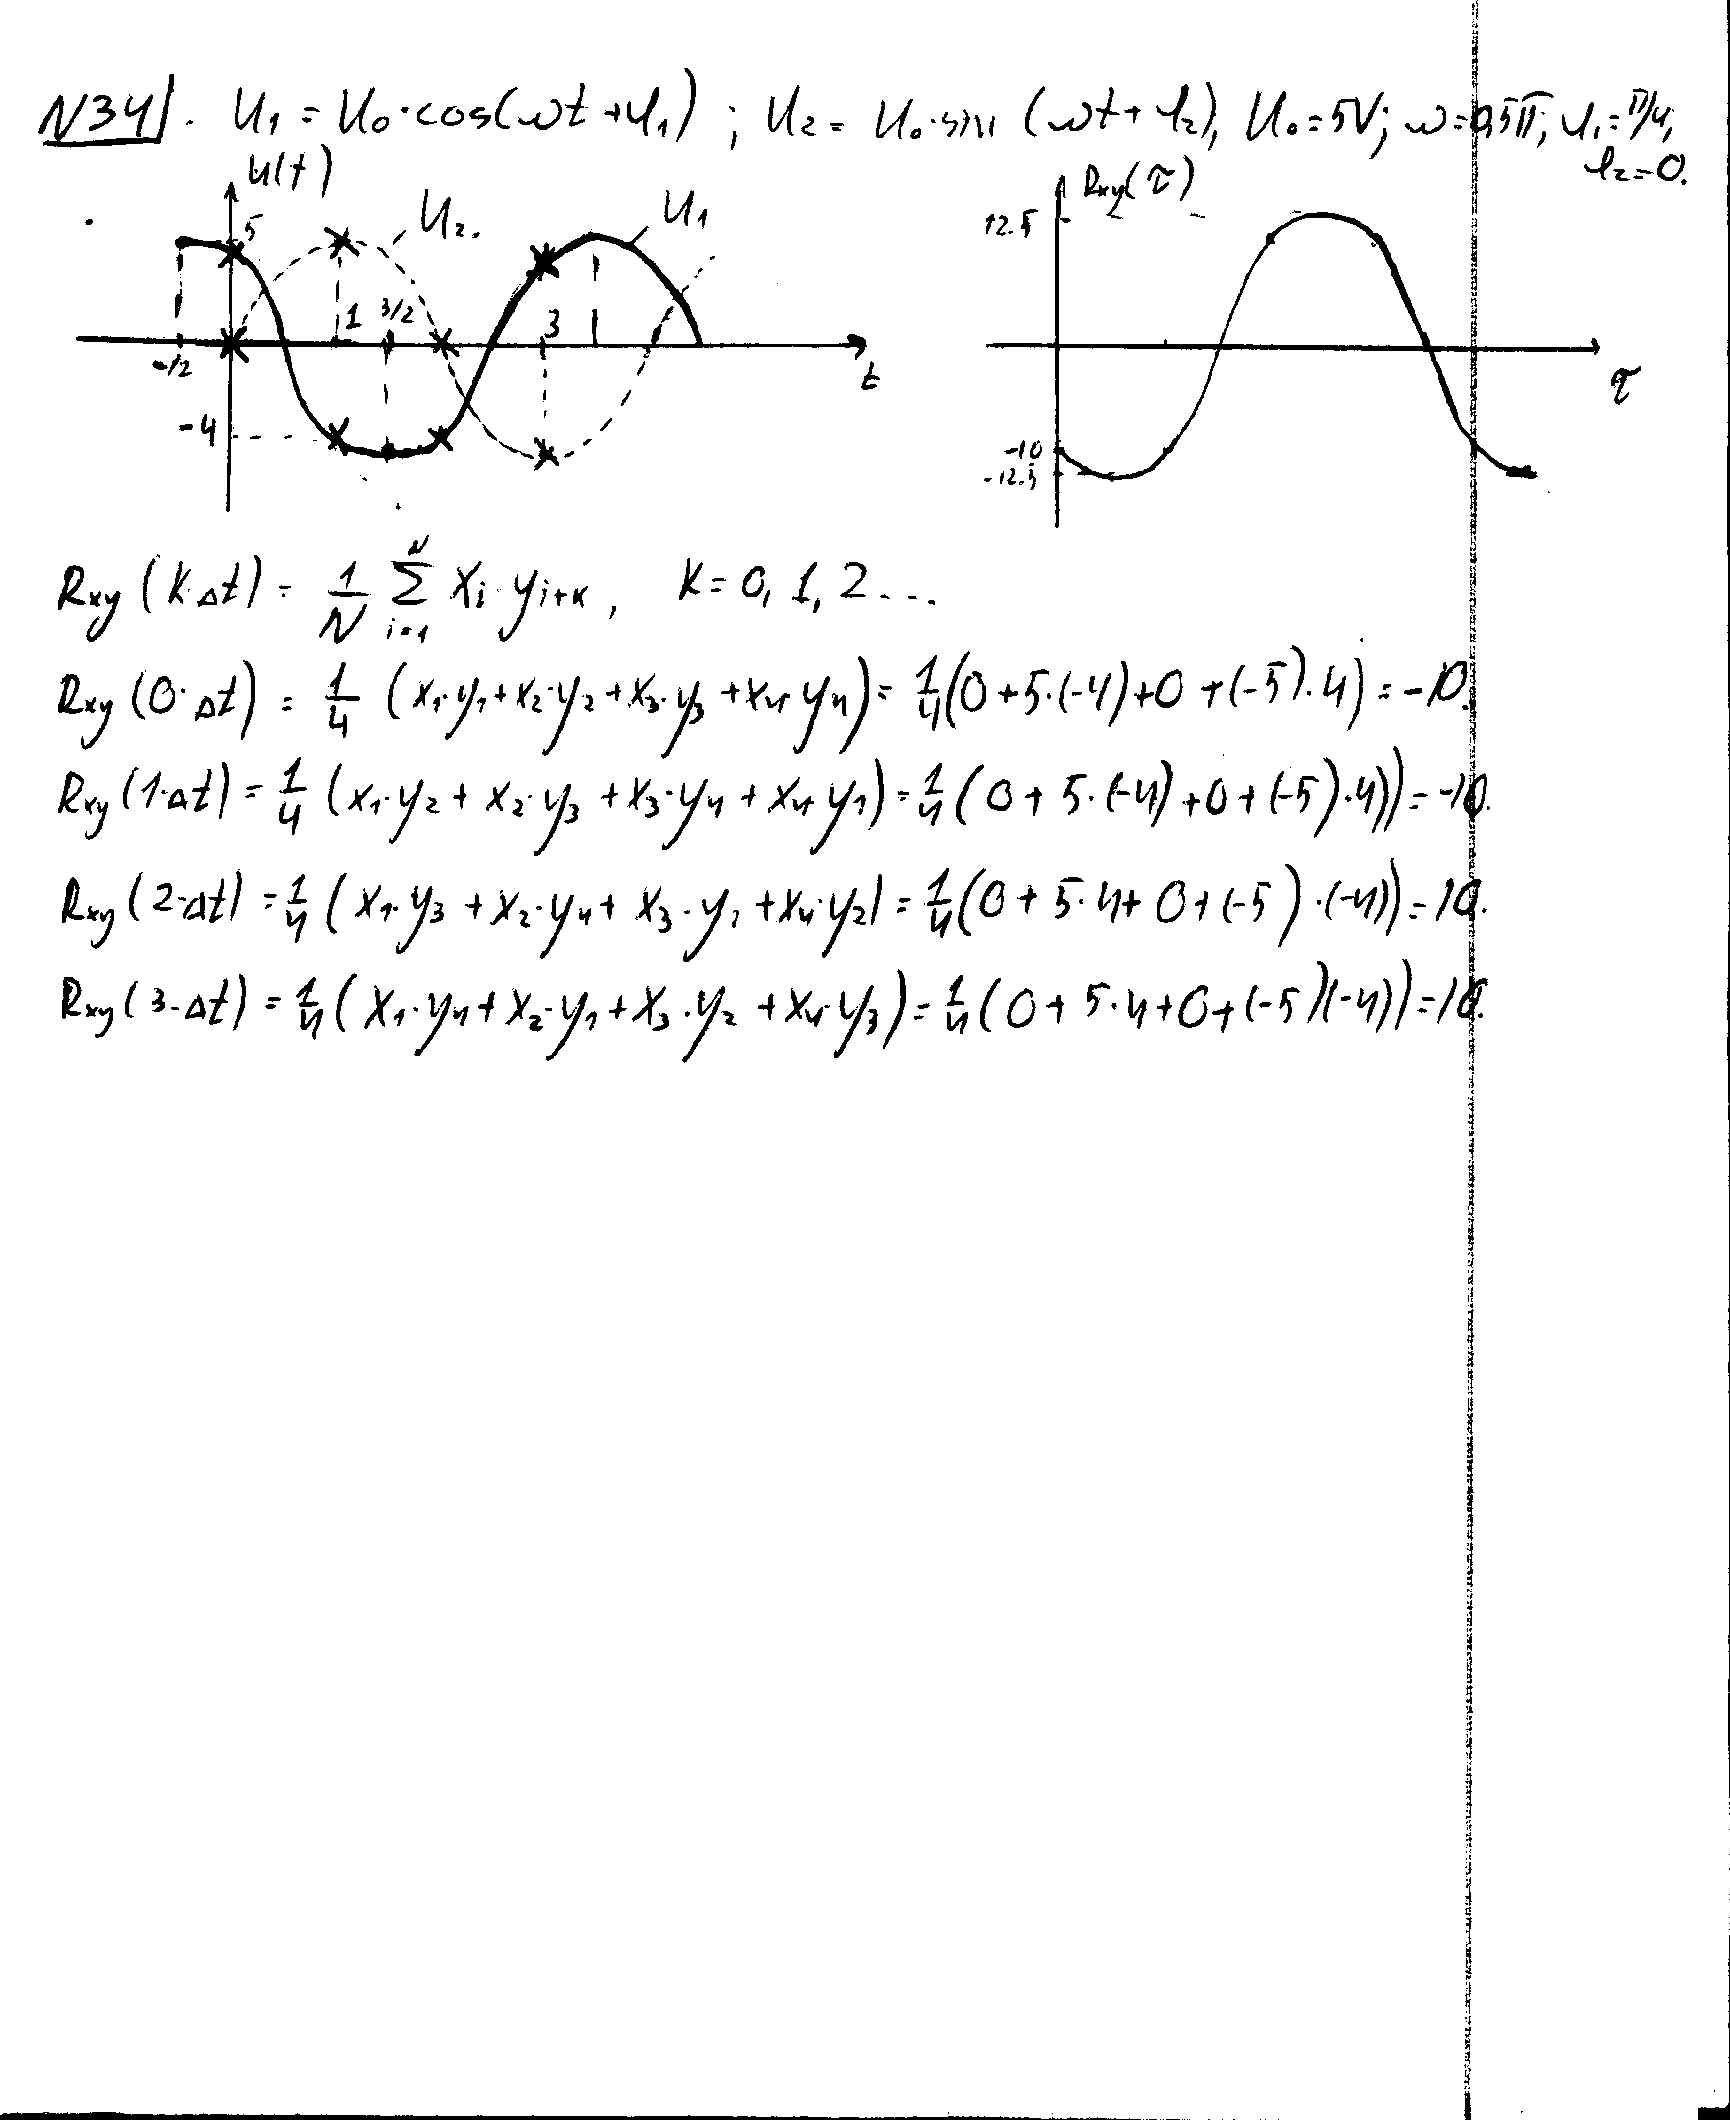 N34. U₁ = U₀·cos(ωt + φ₁) ; U₂ = U₀·sin (ωt + φ₂), U₀ = 5V; ω = 0,5π; φ₁ = π/4,
φ₂ = 0.
U(t)
Rxy(τ)
U₂
U₁
5
12.5
1
3/2
3
-1/2
t
τ
-4
-10
-12.5
Rxy (k·Δt) = 1/N Σ_{i=1}^{N} xᵢ·y_{i+k}, k = 0, 1, 2 ...
Rxy (0·Δt) = 1/4 (x₁·y₁ + x₂·y₂ + x₃·y₃ + x₄·y₄) = 1/4 (0 + 5·(-4) + 0 + (-5)·4) = -10.
Rxy (1·Δt) = 1/4 (x₁·y₂ + x₂·y₃ + x₃·y₄ + x₄·y₁) = 1/4 (0 + 5·(-4) + 0 + (-5)·4)) = -10.
Rxy (2·Δt) = 1/4 (x₁·y₃ + x₂·y₄ + x₃·y₁ + x₄·y₂) = 1/4 (0 + 5·4 + 0 + (-5)·(-4)) = 10.
Rxy (3·Δt) = 1/4 (x₁·y₄ + x₂·y₁ + x₃·y₂ + x₄·y₃) = 1/4 (0 + 5·4 + 0 + (-5)(-4)) = 10.